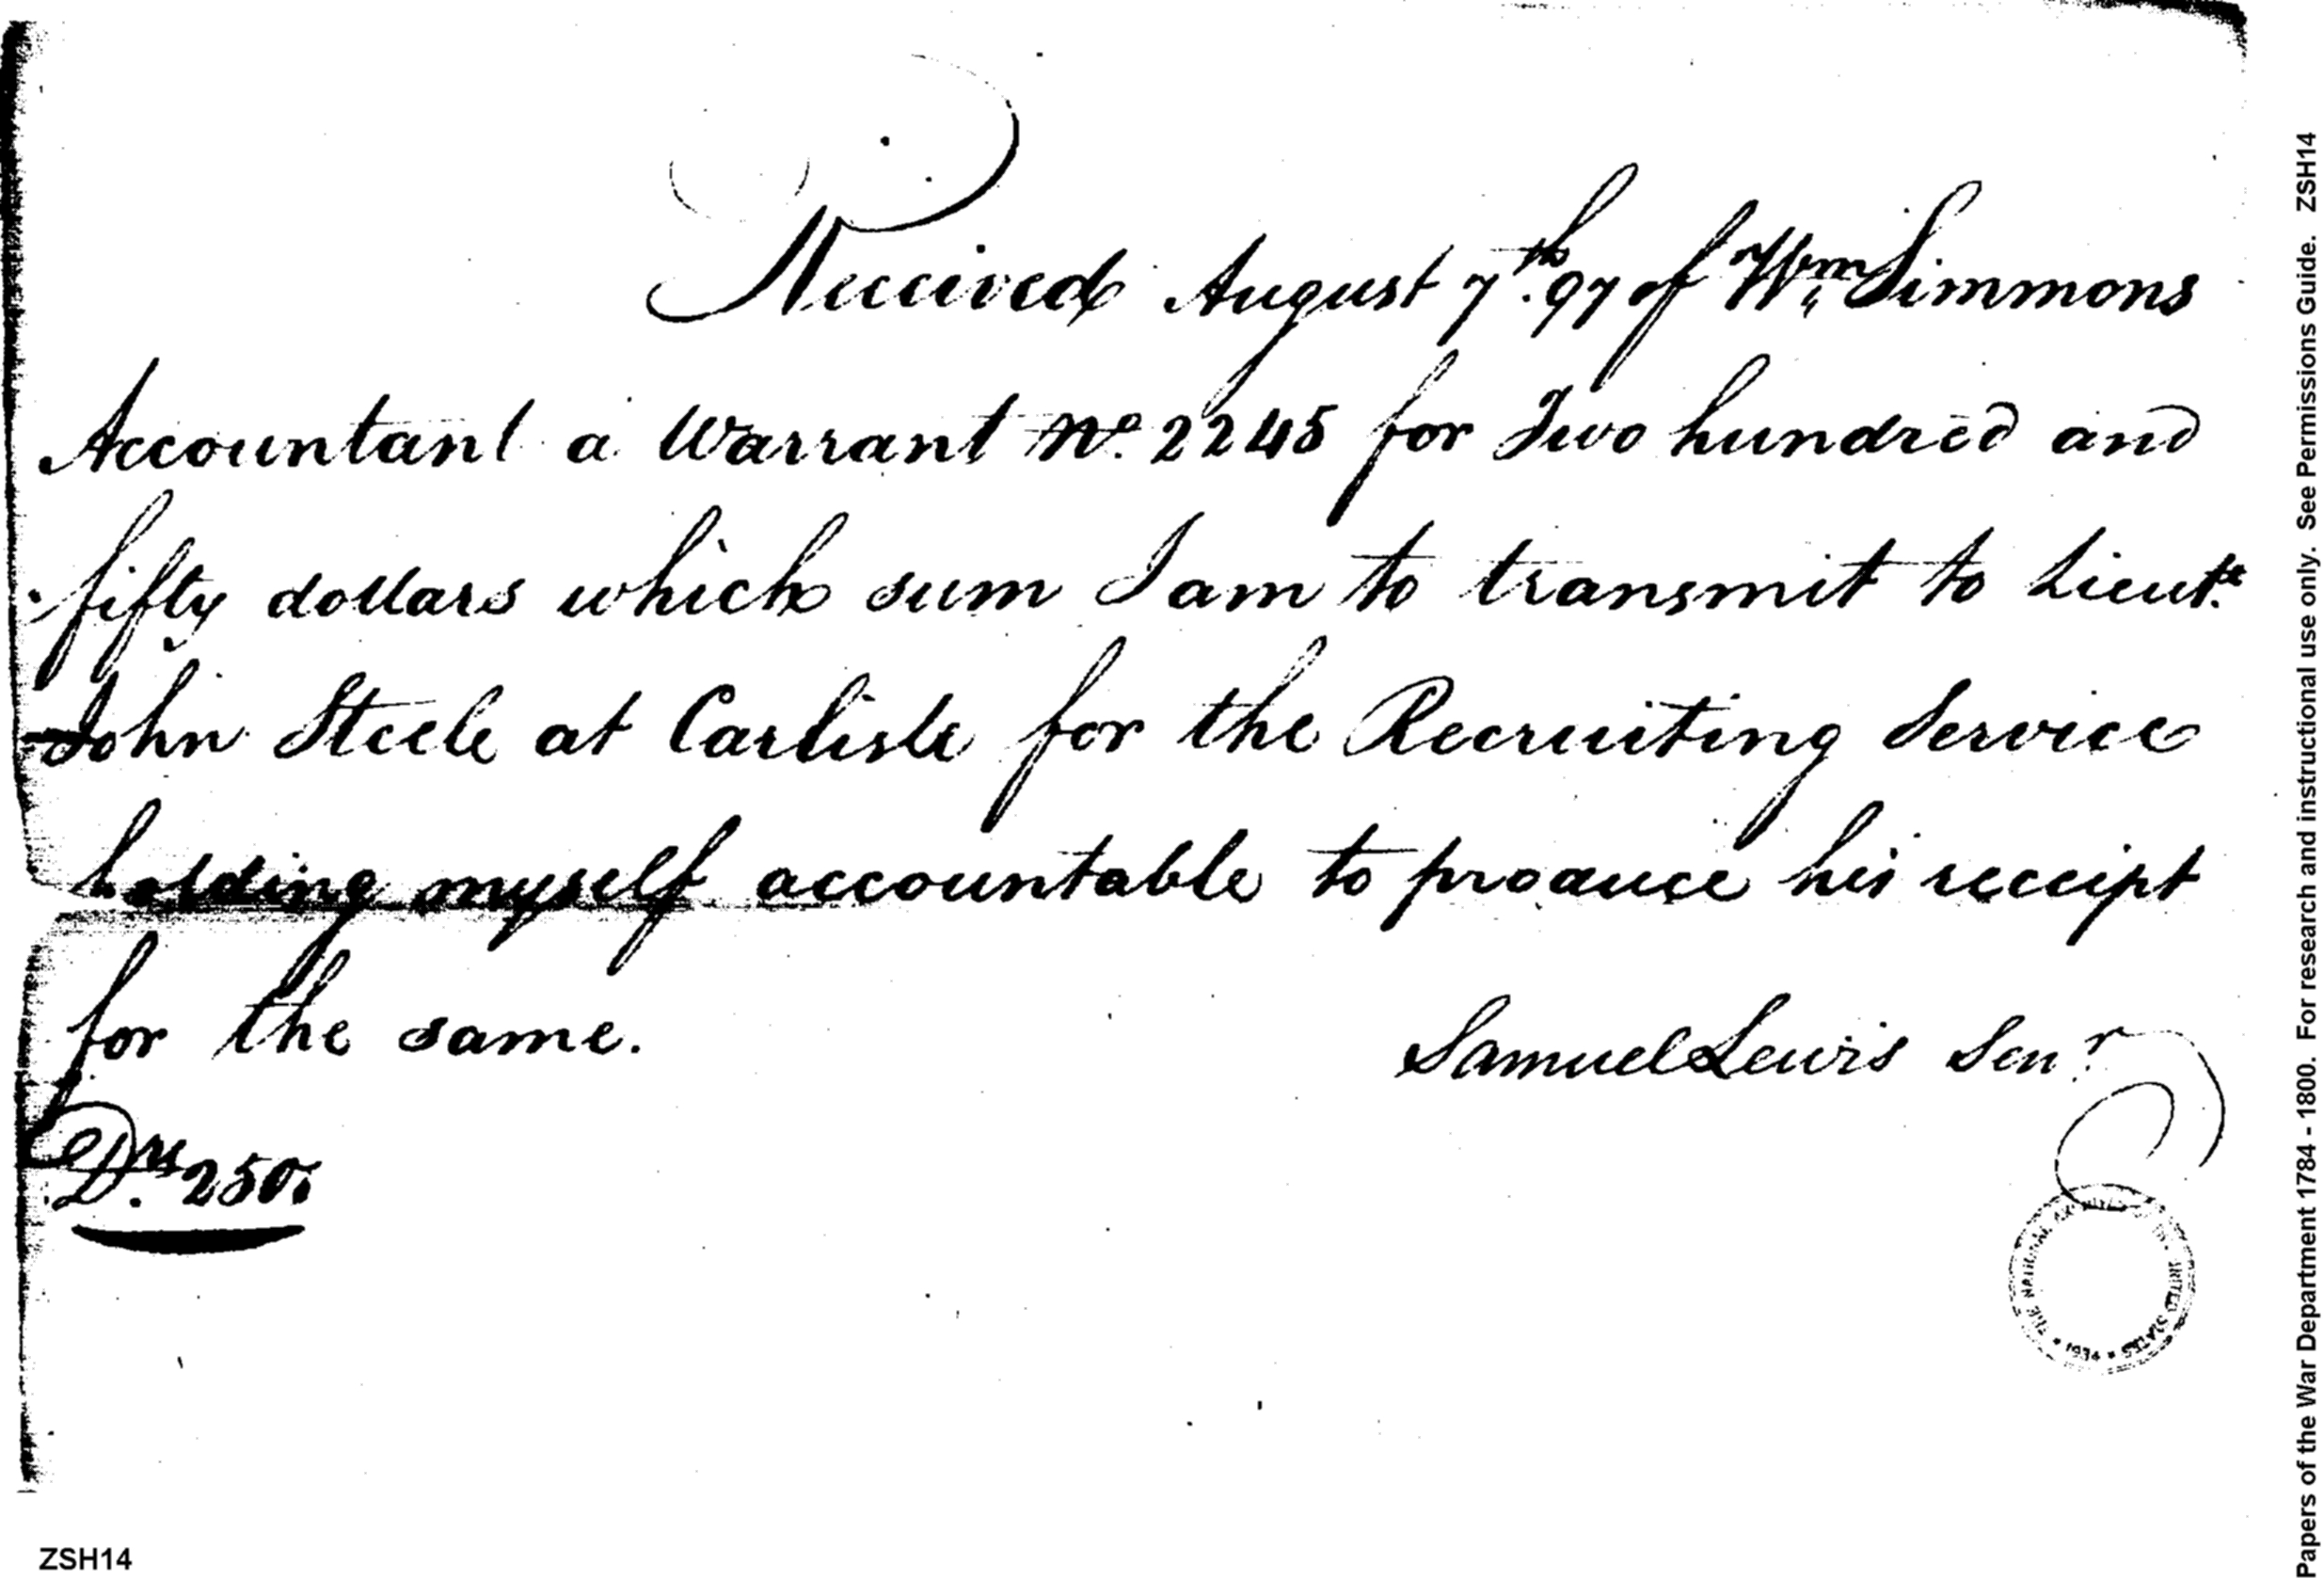 Received August 7th. 97 of Wm. Simmons
Accountant a Warrant No. 2245 for Two hundred and
fifty dollars which sum I am to transmit to Lieutt.
John Steele at Carlisle for the Recruiting Service
holding myself accountable to produce his receipt
for the same.
Samuel Lewis Senr.
Drs. 250.
THE NATIONAL ARCHIVES OF THE UNITED STATES * 1934 *
ZSH14
Papers of the War Department 1784 - 1800. For research and instructional use only. See Permissions Guide. ZSH14